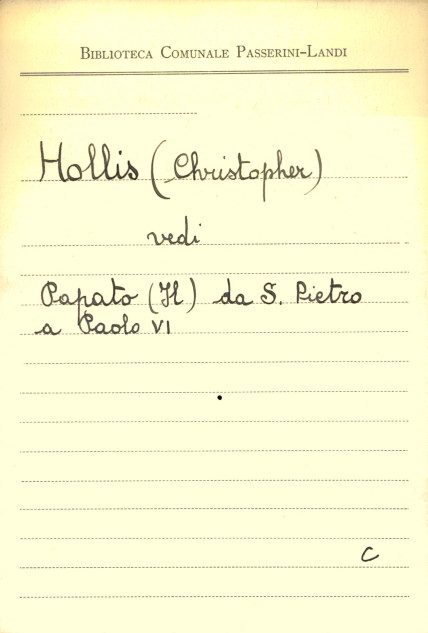 BIBLIOTECA COMUNALE PASSERINI-LANDI
Hollis (Christopher)
vedi
Papato (Il) da S. Pietro
a Paolo VI
C